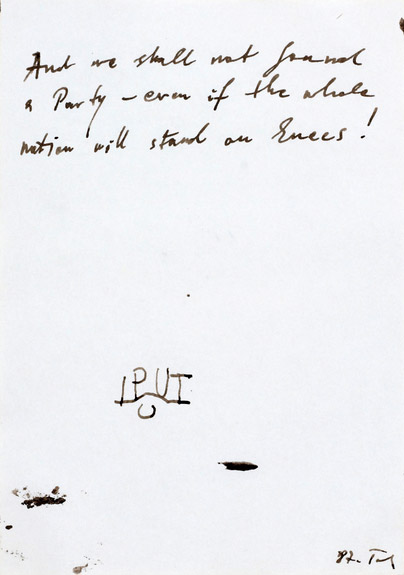 And we shall not found
a Party – even if the whole
nation will stand on knees!
IPUT
87.